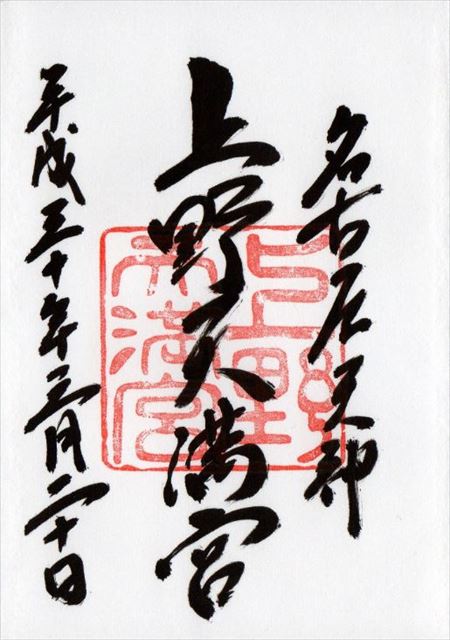 名古屋天神
上野天満宮
平成三十年三月二十日
上野天満宮